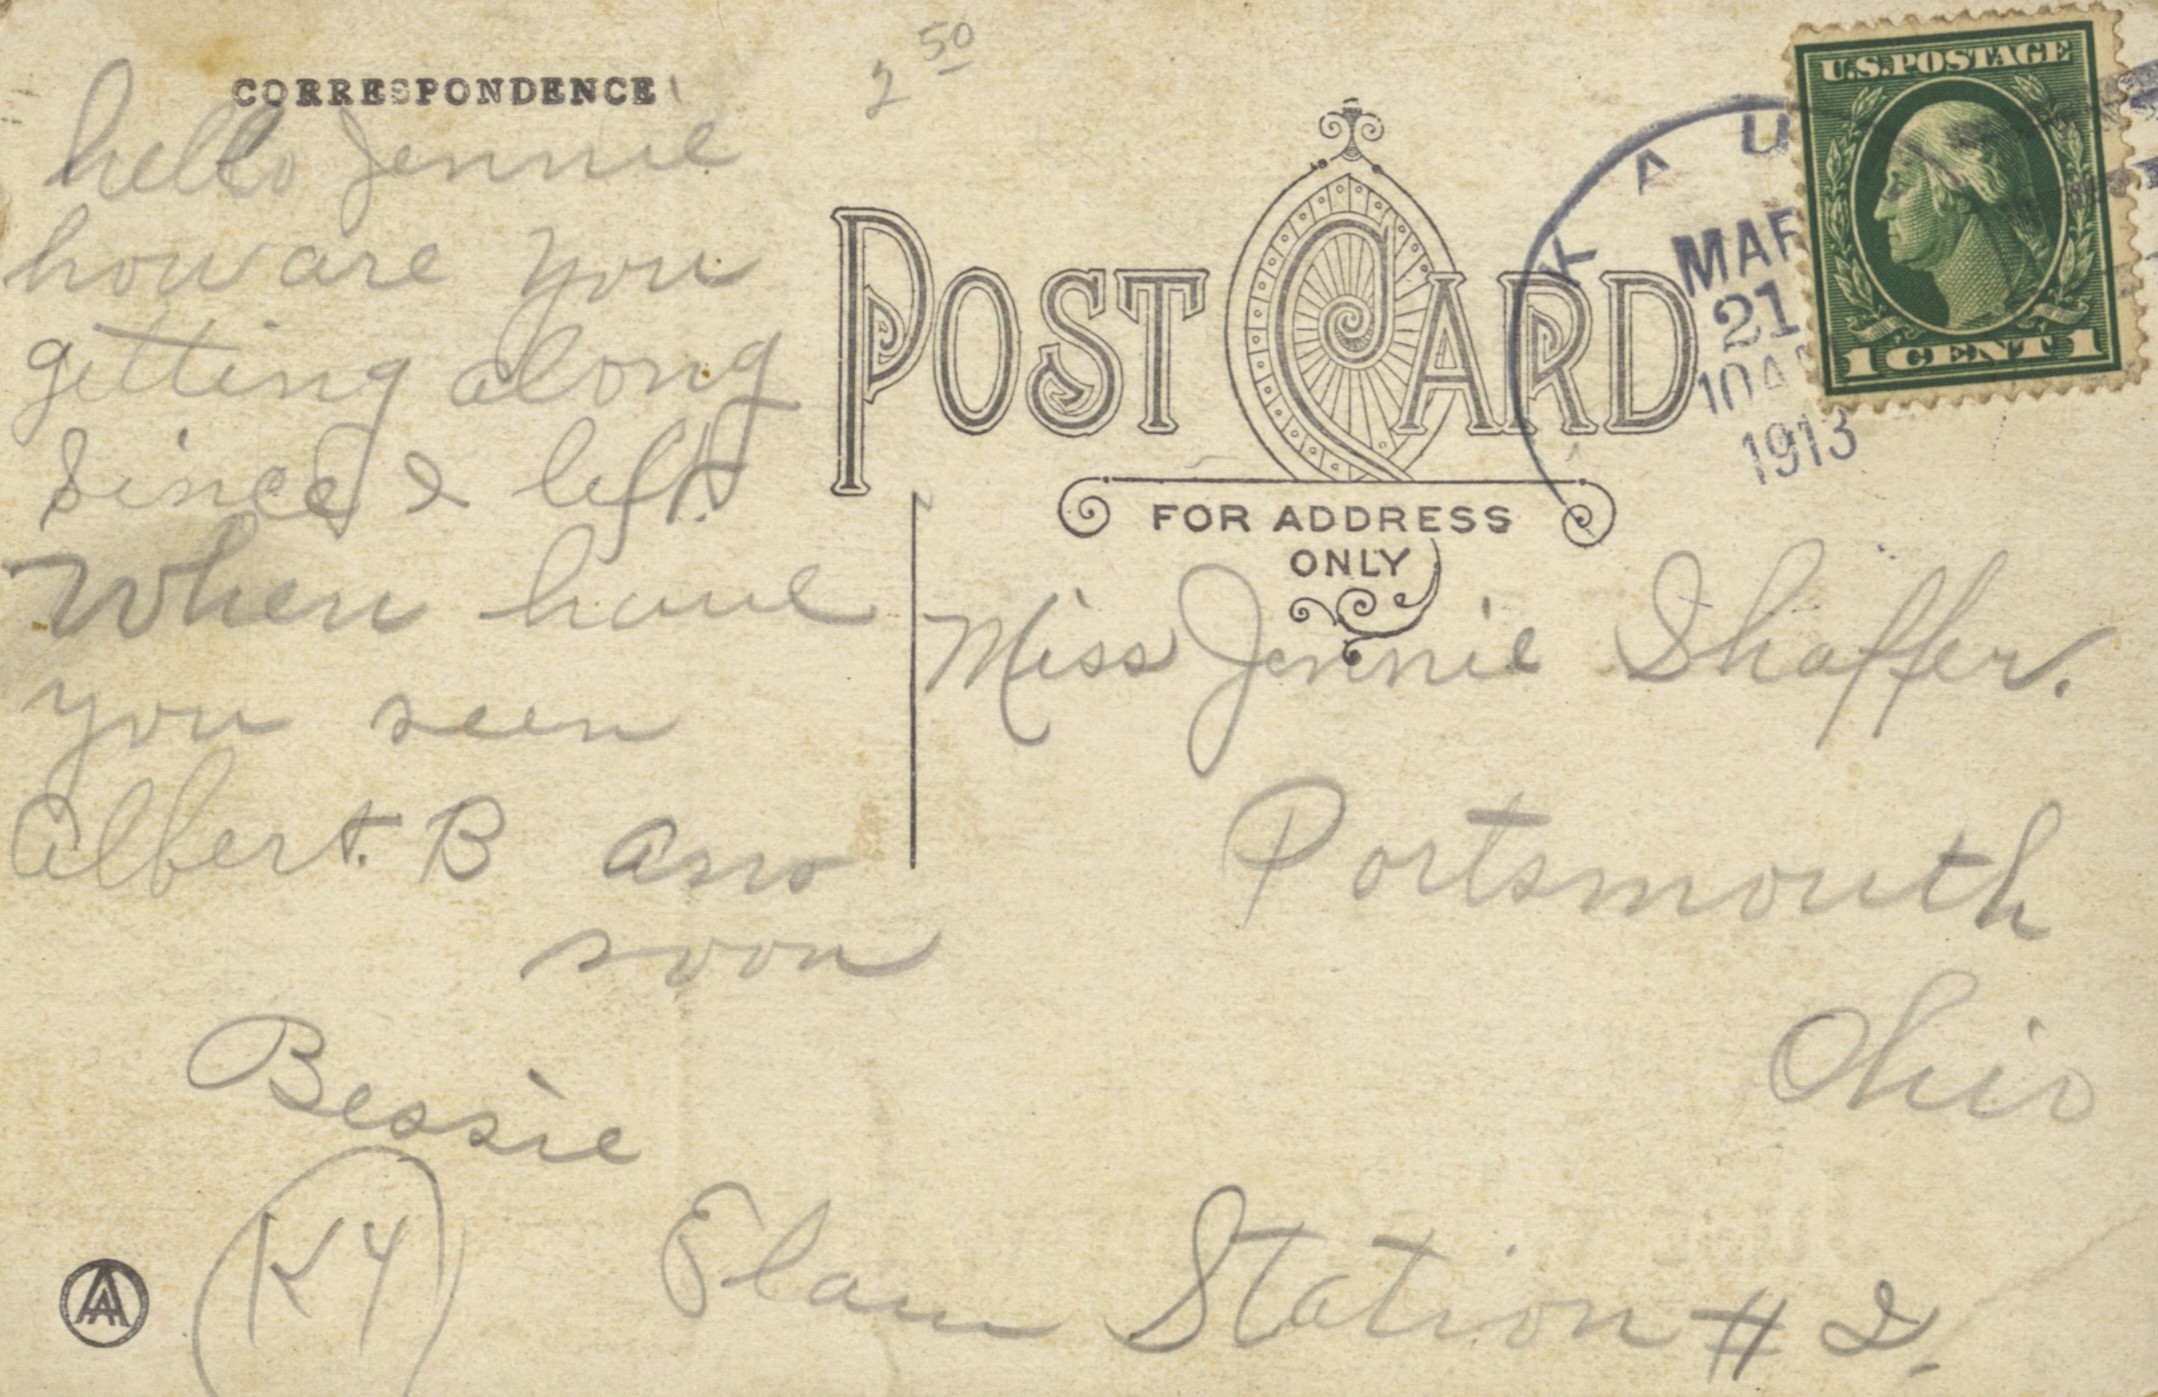 CORRESPONDENCE
2 50
hello Jennie
how are you
getting along
since I left.
When have
you seen
Albert. B ans
soon
Bessie
KY
POST CARD
FOR ADDRESS
ONLY
U.S. POSTAGE
1 CENT 1
KAU
MAR
21
10 A
1913
Miss Jennie Shaffer.
Portsmouth
Ohio
Elam Station # 2.